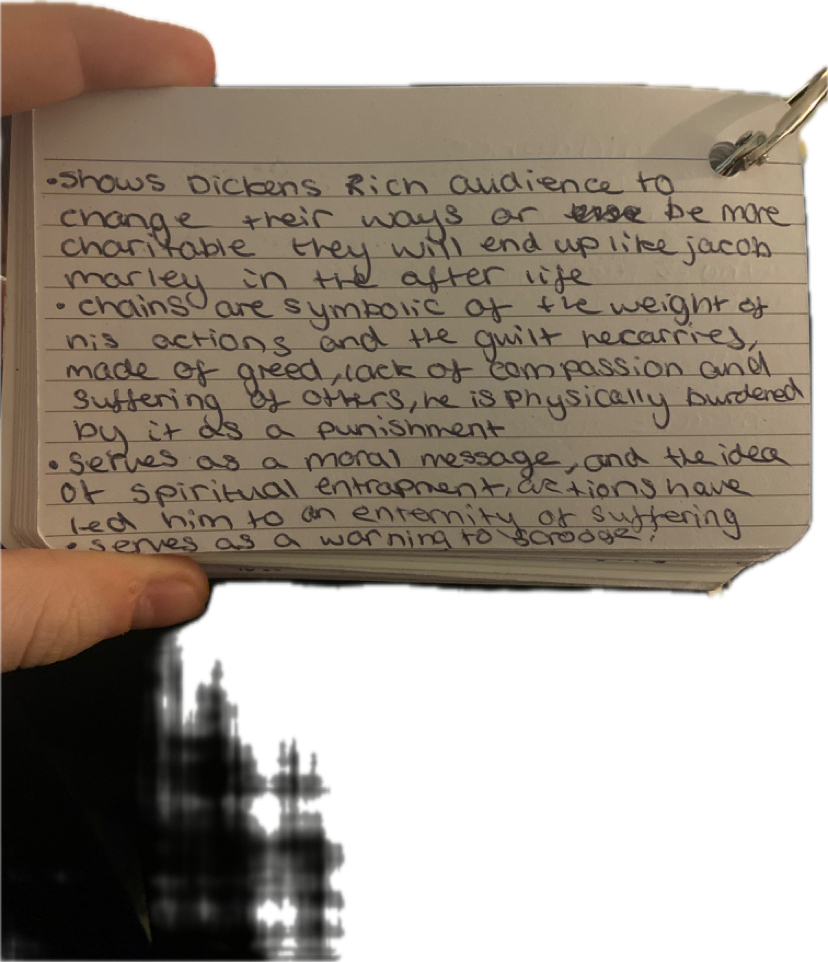 •shows Dickens Rich audience to
change their ways or be more
charitable they will end up like jacob
marley in the after life
• chains are symbolic of the weight of
his actions and the guilt he carries,
made of greed, lack of compassion and
suffering of others, he is physically burdened
by it as a punishment
• serves as a moral message, and the idea
of spiritual entrapment, actions have
led him to an enternity of suffering
• serves as a warning to scrooge.